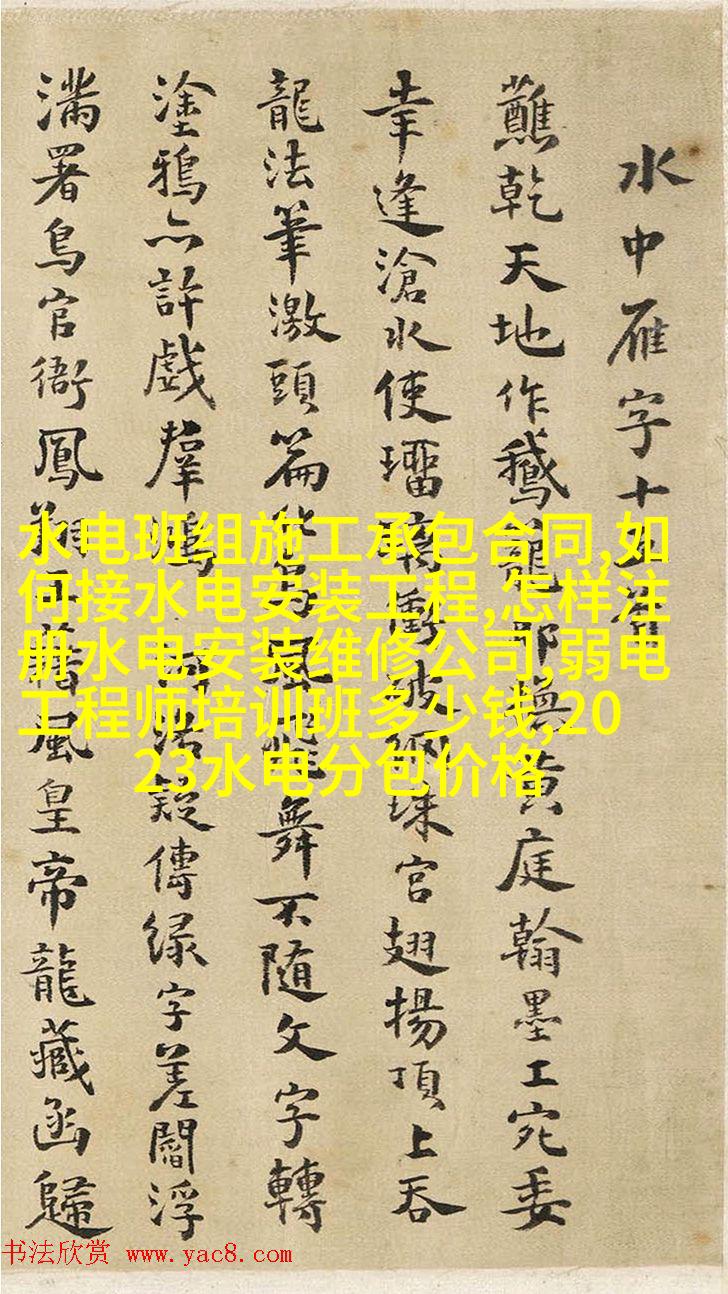 水中雁字十五首
蘸乾天地作鵝籠那撫黄庭翰墨工宛委
幸逢滄水使璢璃衝破網珠宮翅揚頂上吞
龍法筆激頭篇鳳飛舞不随文字轉
塗鴉亦許戲羣鴻疑傳緑字差閻浮
滿署鳥官銜鳳翔正藉風皇帝龍藏函歸
水电班组施工承包合同,如
何接水电安装工程,怎样注
册水电安装维修公司,弱电
工程师培训班多少钱,20
23水电分包价格
书法欣赏 www.yac8.com